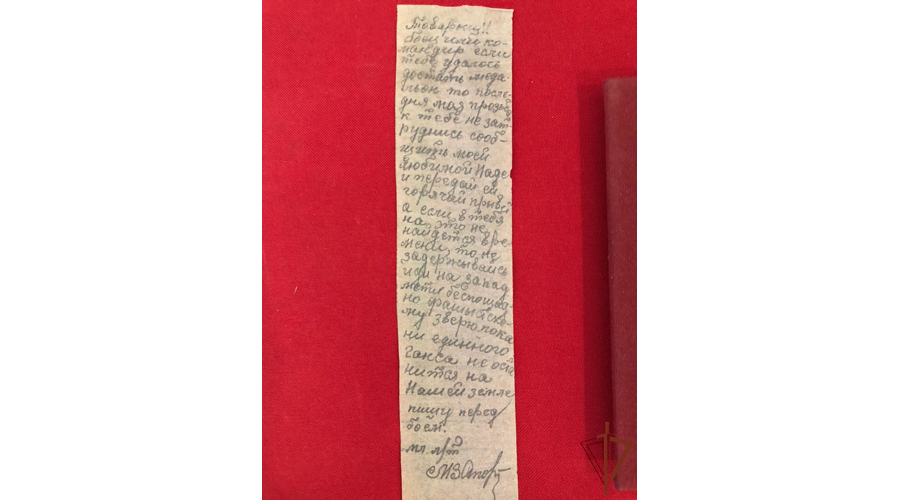 Товарищ!!
боец или ко-
мандир если
тебе удалось
достать меда-
льон то после-
дняя моя прозьба
к тебе не зат-
руднись сооб-
щить моей
любимой Наде
и передай ей
горячий привет
а если в тебя
на это не
найдется вре-
мени, то не
задерживаись
иди на запад
мсти беспощад-
но фашыйско-
му зверю пока
ни единного
Ганса не оста
нится на
Нашей земле
пишу перед
боем.
мл. л/т